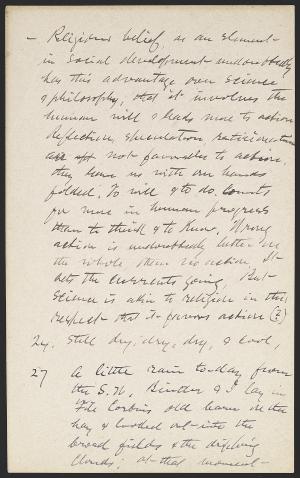 — Religious belief, as an element
in social development undoubtedly
has this advantage over science
& philosophy, that it involves the
human will & leads more to action.
Reflection, speculation ratiocination
are not favorable to action,
they leave us with our hands
folded. To will & to do counts
for more in human progress
than to think & to know. Wrong
action is undoubtedly better on
the whole than no action. It
sets the currents going. But
science is akin to religion in this
respect that it favors action (?)
24. Still dry, dry, dry, & cool,
27 A little rain to-day from
the S.W. Binder & I lay in
the Corbins old barn on the
hay & looked out into the
broad fields & the dripping
clouds; at that moment